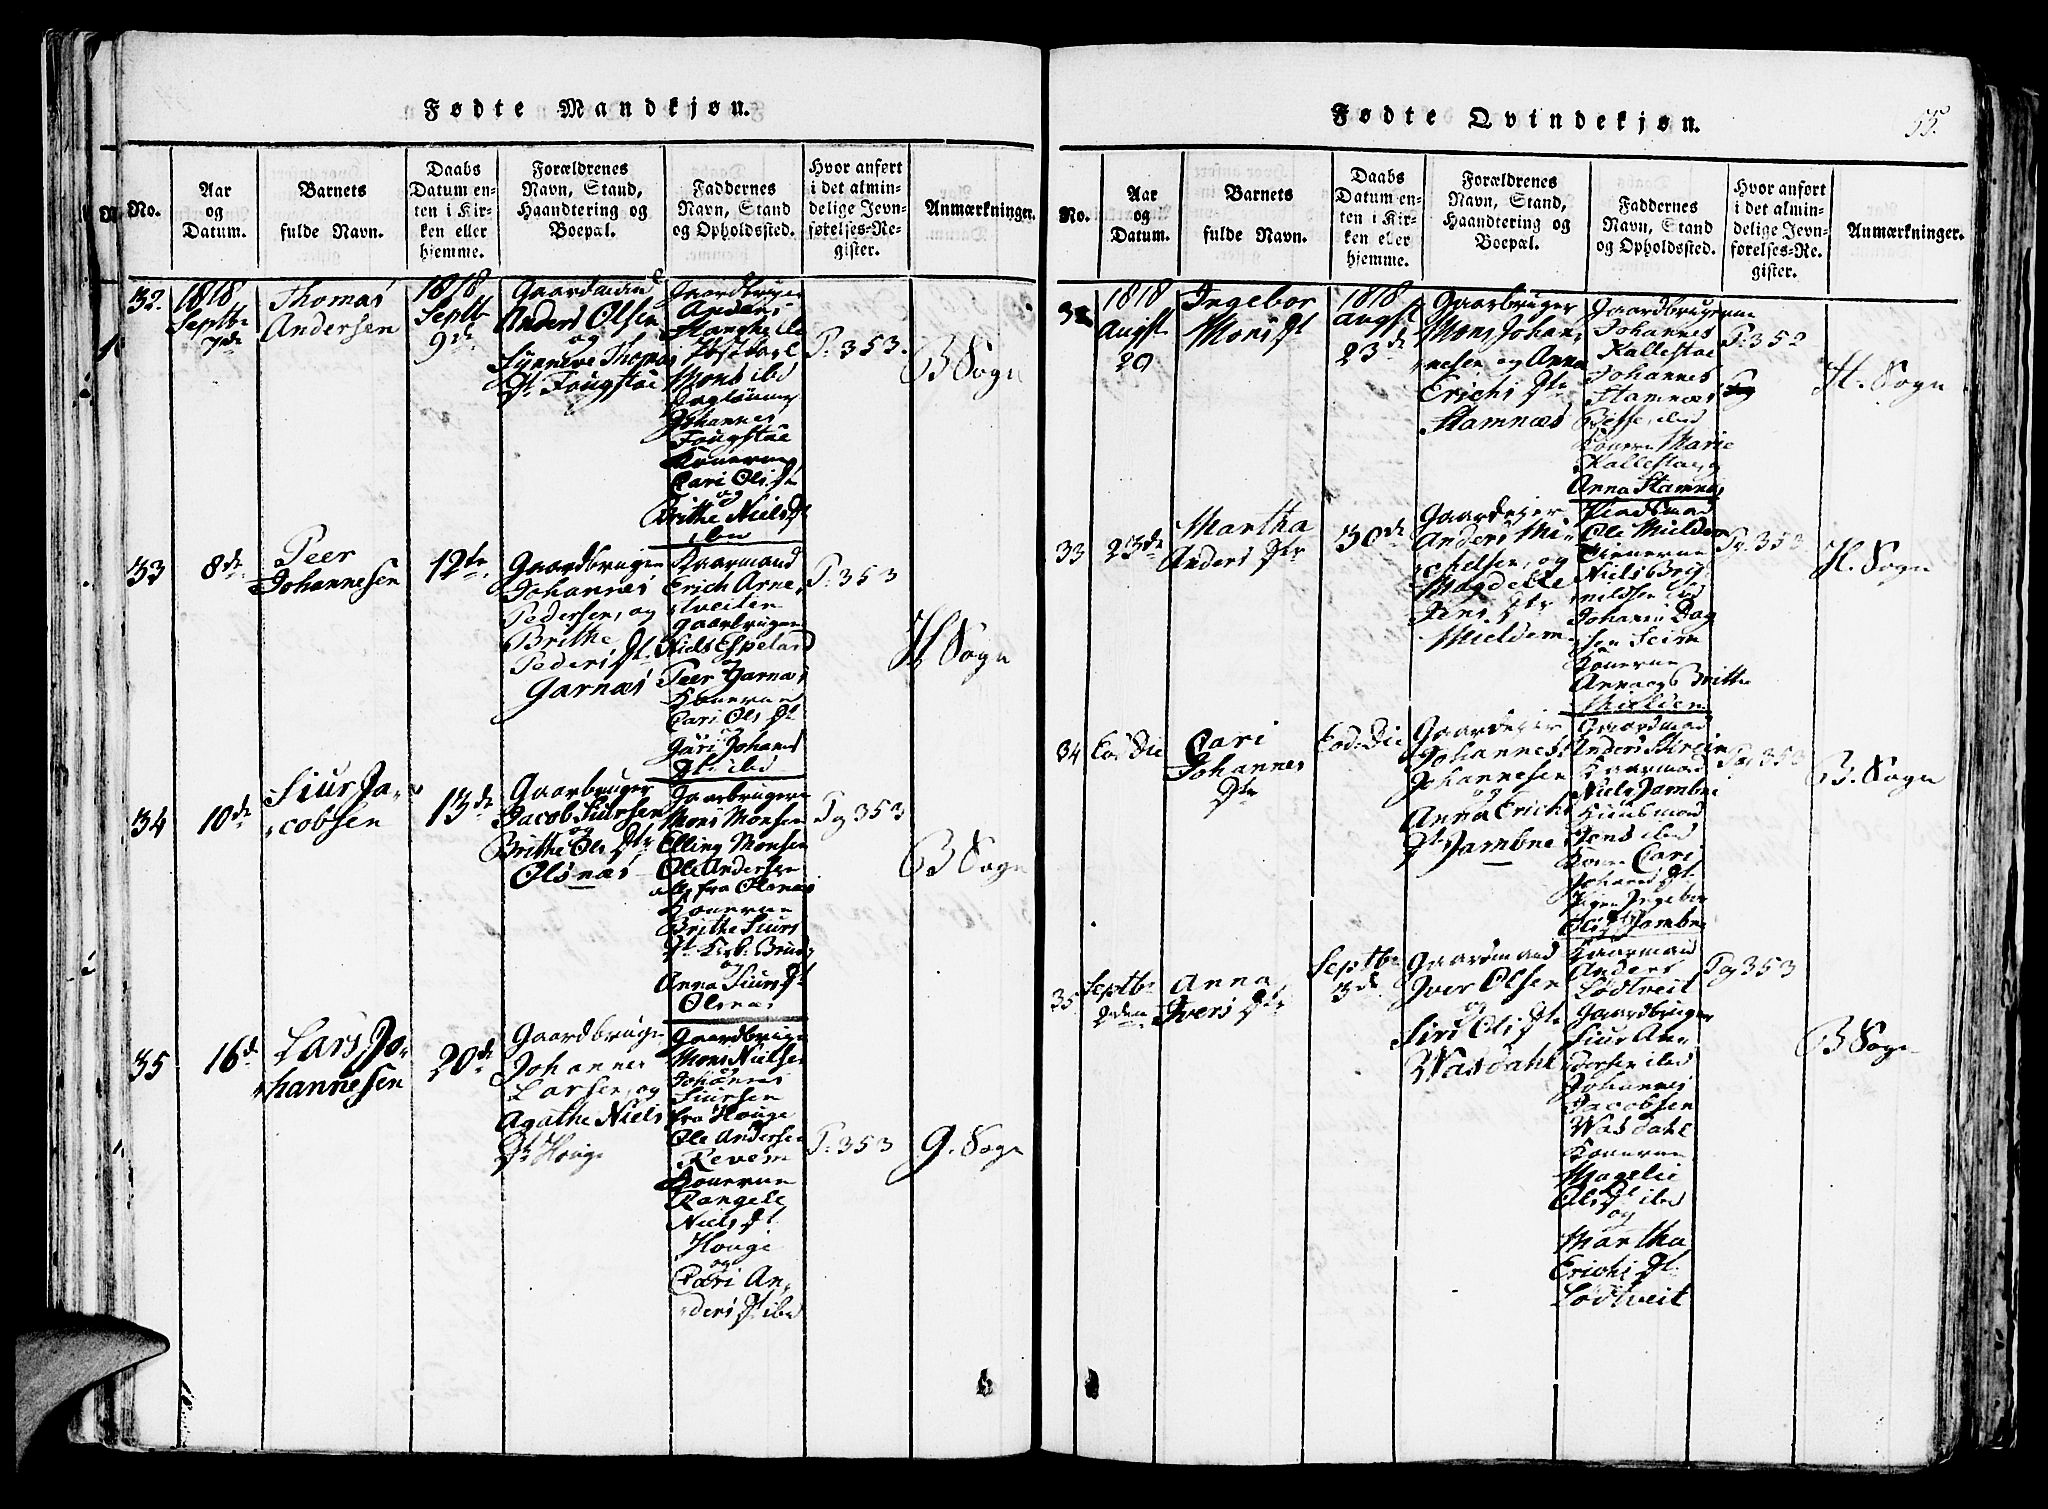 Fødte Mandkjøn.
No.
Aar
og
Datum.
Barnets
fulde Navn.
Daabs
Datum en-
ten i Kir-
ken eller
hjemme.
Forældrenes
Navn, Stand,
Haandtering og
Boepæl.
Faddernes
Navn, Stand
og Opholdssted.
Hvor anført
i det almin-
delige Jevn-
førelses-Re-
gister.
Anmærkninger.
32.
1818
Septbr
7de
Thomas
Andersen
1818
Septb
9de
Anders Olsen
og
Synneve Thomas
Dt. Fougstae
Gaardbruger
Anders
Mons ibd
Johannes
Fougstae
Konerne
Cari Ols Dt
og
Brithe Niels Dt
ibd
P. 353.
B Sogn
33
8de
Peer
Johannesen
12te
Gaardbruger
Johannes
Pedersen, og
Brithe
Peders Dt.
Garnæs
Erich Arne
tveiten
Gaarbruger
Niels Espeland
og
Peer Garnæs
Konerne
Cari Ols Dt
og
Guri Johannes
Dt. ibd
P. 353
H Sogn
34
10de
Siur Ja-
cobsen
13de
Gaarbruger
Jacob Siursen
og
Brithe Ols Dtr
Olsnæs
Gaarbrugere
Mons Monsen
Elling Monsen
Ole Andersen
alle fra Olsnæs
Konerne
Brithe Siurs
og
Anna Siurs Dt
Olsnæs
Pg 353
B Sogn
35
16de
Lars Jo-
hannesen
20de
Gaardbruger
Johannes
Larsen, og
Agathe Niels
Dt Houge
Gaardbruger
Mons Nielsen
og
Johannes
Siursen
fra Houge
Ole Andersen
Revem
Konerne
Rangele
Niels Dt
Houge
og
Cari An-
ders Dt ibd
P. 353
G. Sogn
Fødte Qvindekjøn.
55.
No.
Aar
og
Datum.
Barnets
fulde Navn.
Daabs
Datum en-
ten i Kir-
ken eller
hjemme.
Forældrenes
Navn, Stand,
Haandtering og
Boepæl.
Faddernes
Navn, Stand
og Opholdssted.
Hvor anført
i det almin-
delige Jevn-
førelses-Re-
gister.
Anmærkninger.
32
1818
Augst
20
Ingebor
Mons Dt
1818
Augst
23de
Gaarbruger
Mons Johan-
nesen og Anna
Erichs Dtr
Stamnæs
Gaardbrugerne
Johannes
Kallestae
Johannes
Stamnæs
Konerne Marie
Kallestae, og
Anna Stamnæs
P. 352
H. Sogn
33
23de
Martha
Anders Dtr
30de
Gaardeier
Anders Mi-
chelsen, og
Magdele
Jens Dtr
Mieldem
Pladsmand
Ole Mieldem
Niels Bry-
nildsen ibd
Johannes Dag
sen Seim
Konerne
Anna og Brithe
Mieldem
Pg. 353
H. Sogn
34
Eod. Die
Cari
Johannes
Dtr
Eod. Die
Gaardeier
Johannes
Johannesen
og
Anna Erichs
Dt. Jambne
Gaardmand
Niels Jambne
Huusmand
Jens ibd
Kone Cari
Johannes Dt.
Pigen Ingebor
Ols Dt Jambne
Pg 353
B. Sogn
35
Septbr
2den
Anna
Ivers Dtr
Septbr
3de
Gaardmand
Iver Olsen
og
Siri Ols Dt.
Wasdahl
Gaarmand
Anders
Lodtveit
Gaardbruger
Siur An-
dersen ibd
Johannes
Jacobsen
Wasdahl
Konerne
Magelie
Ols Dt ibd
og
Martha
Erichs Dt.
Lodtveit
Pg 353
B Sogn